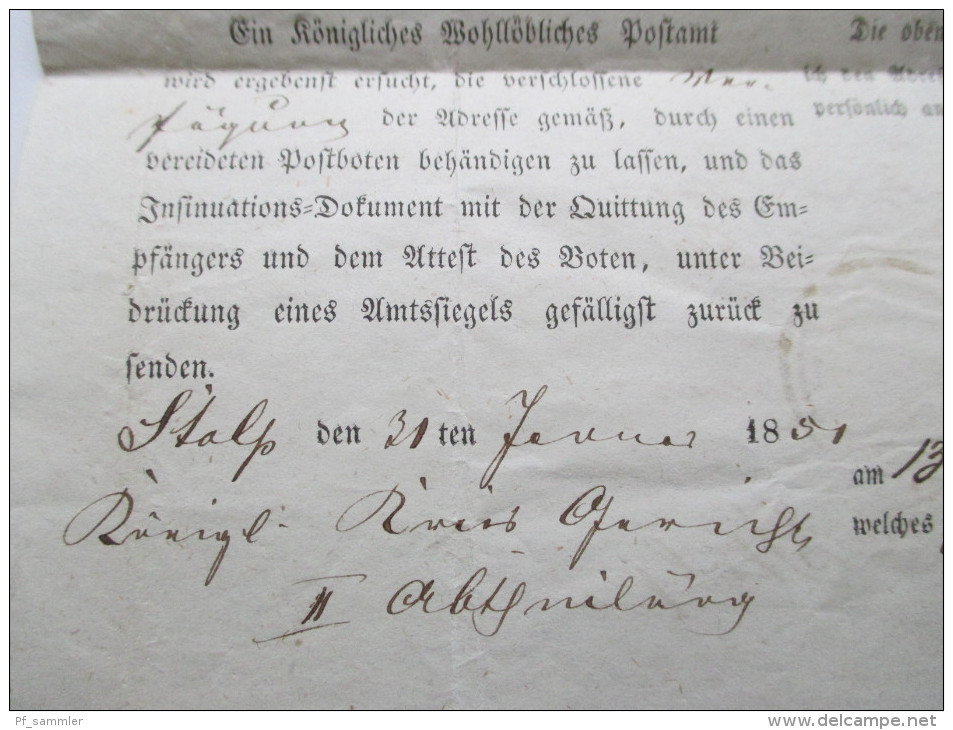 Ein Königliches Wohllöbliches Postamt
wird ergebenst ersucht, die verschlossene Ver-
fügung der Adresse gemäß, durch einen
vereideten Postboten behändigen zu lassen, und das
Insinuations-Dokument mit der Quittung des Em-
pfängers und dem Attest des Boten, unter Bei-
drückung eines Amtssiegels gefälligst zurück zu
senden.
Stolp den 31ten Januar 1851
Königl. Kreis Gericht,
II Abtheilung
Die oben
ich den
persönlich
am 13
welches
Pf_sammler
www.delcampe.net